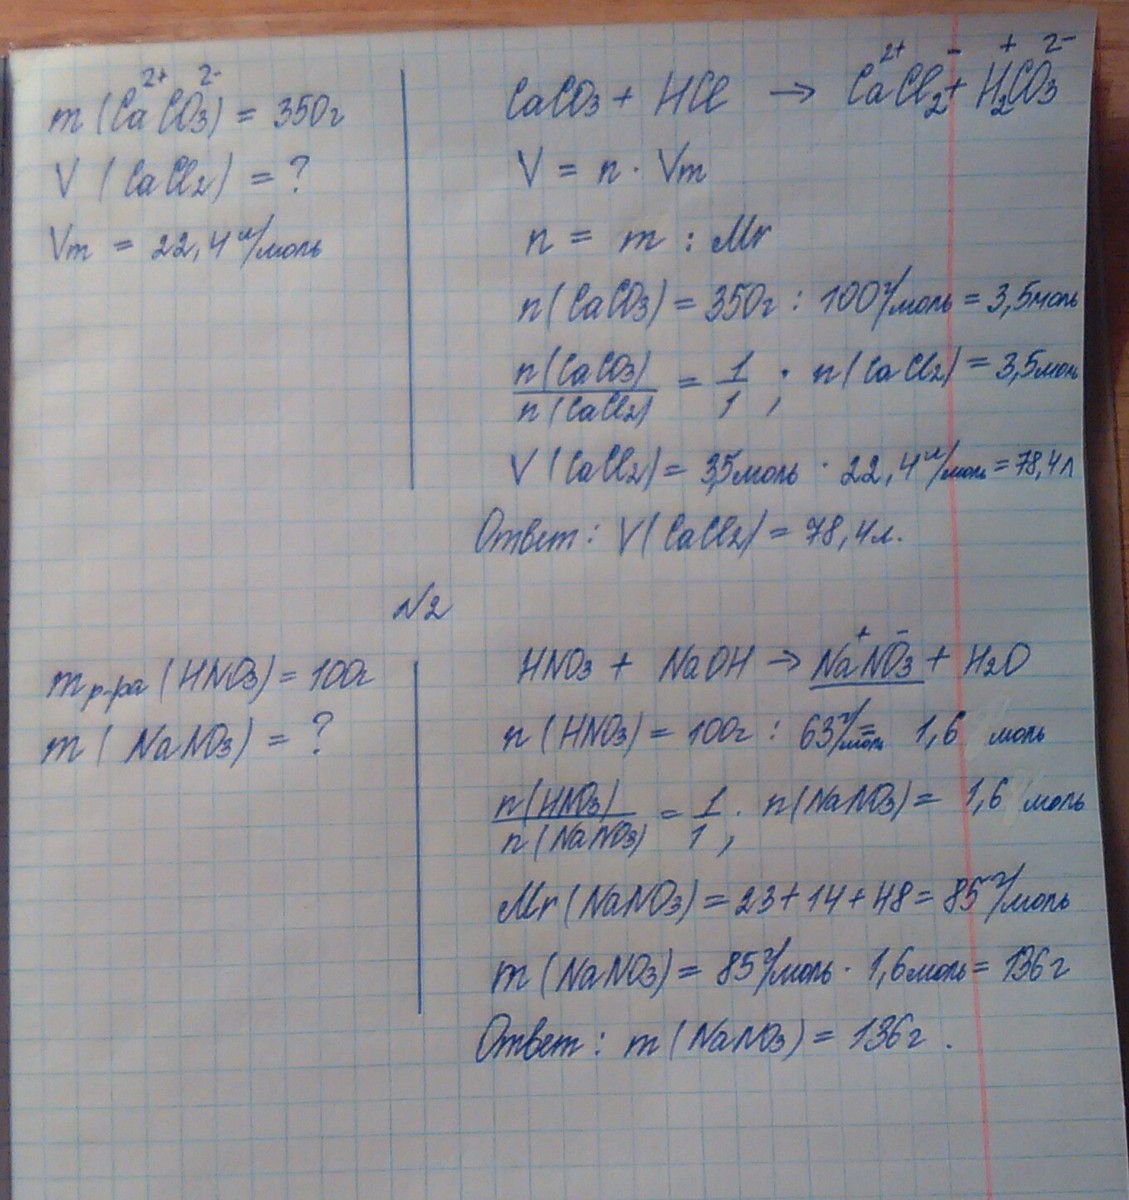 m (Ca²⁺CO₃²⁻) = 350г
V (CaCl₂) = ?
Vm = 22,4 л/моль
CaCO₃ + HCl → Ca²⁺Cl⁻₂ + H⁺₂CO₃²⁻
V = n · Vm
n = m : Mr
n(CaCO₃) = 350г : 100 г/моль = 3,5моль
n(CaCO₃) / n(CaCl₂) = 1/1 ; n(CaCl₂) = 3,5моль
V (CaCl₂) = 3,5моль · 22,4 л/моль = 78,4л
Ответ: V(CaCl₂) = 78,4л.
N2
m р-ра (HNO₃) = 100г
m ( NaNO₃) = ?
HNO₃ + NaOH → Na⁺NO₃⁻ + H₂O
n (HNO₃) = 100г : 63 г/моль = 1,6 моль
n(HNO₃) / n(NaNO₃) = 1/1 ; n(NaNO₃) = 1,6 моль
Mr (NaNO₃) = 23+14+48 = 85 г/моль
m (NaNO₃) = 85 г/моль · 1,6моль = 136г
Ответ: m (NaNO₃) = 136г.